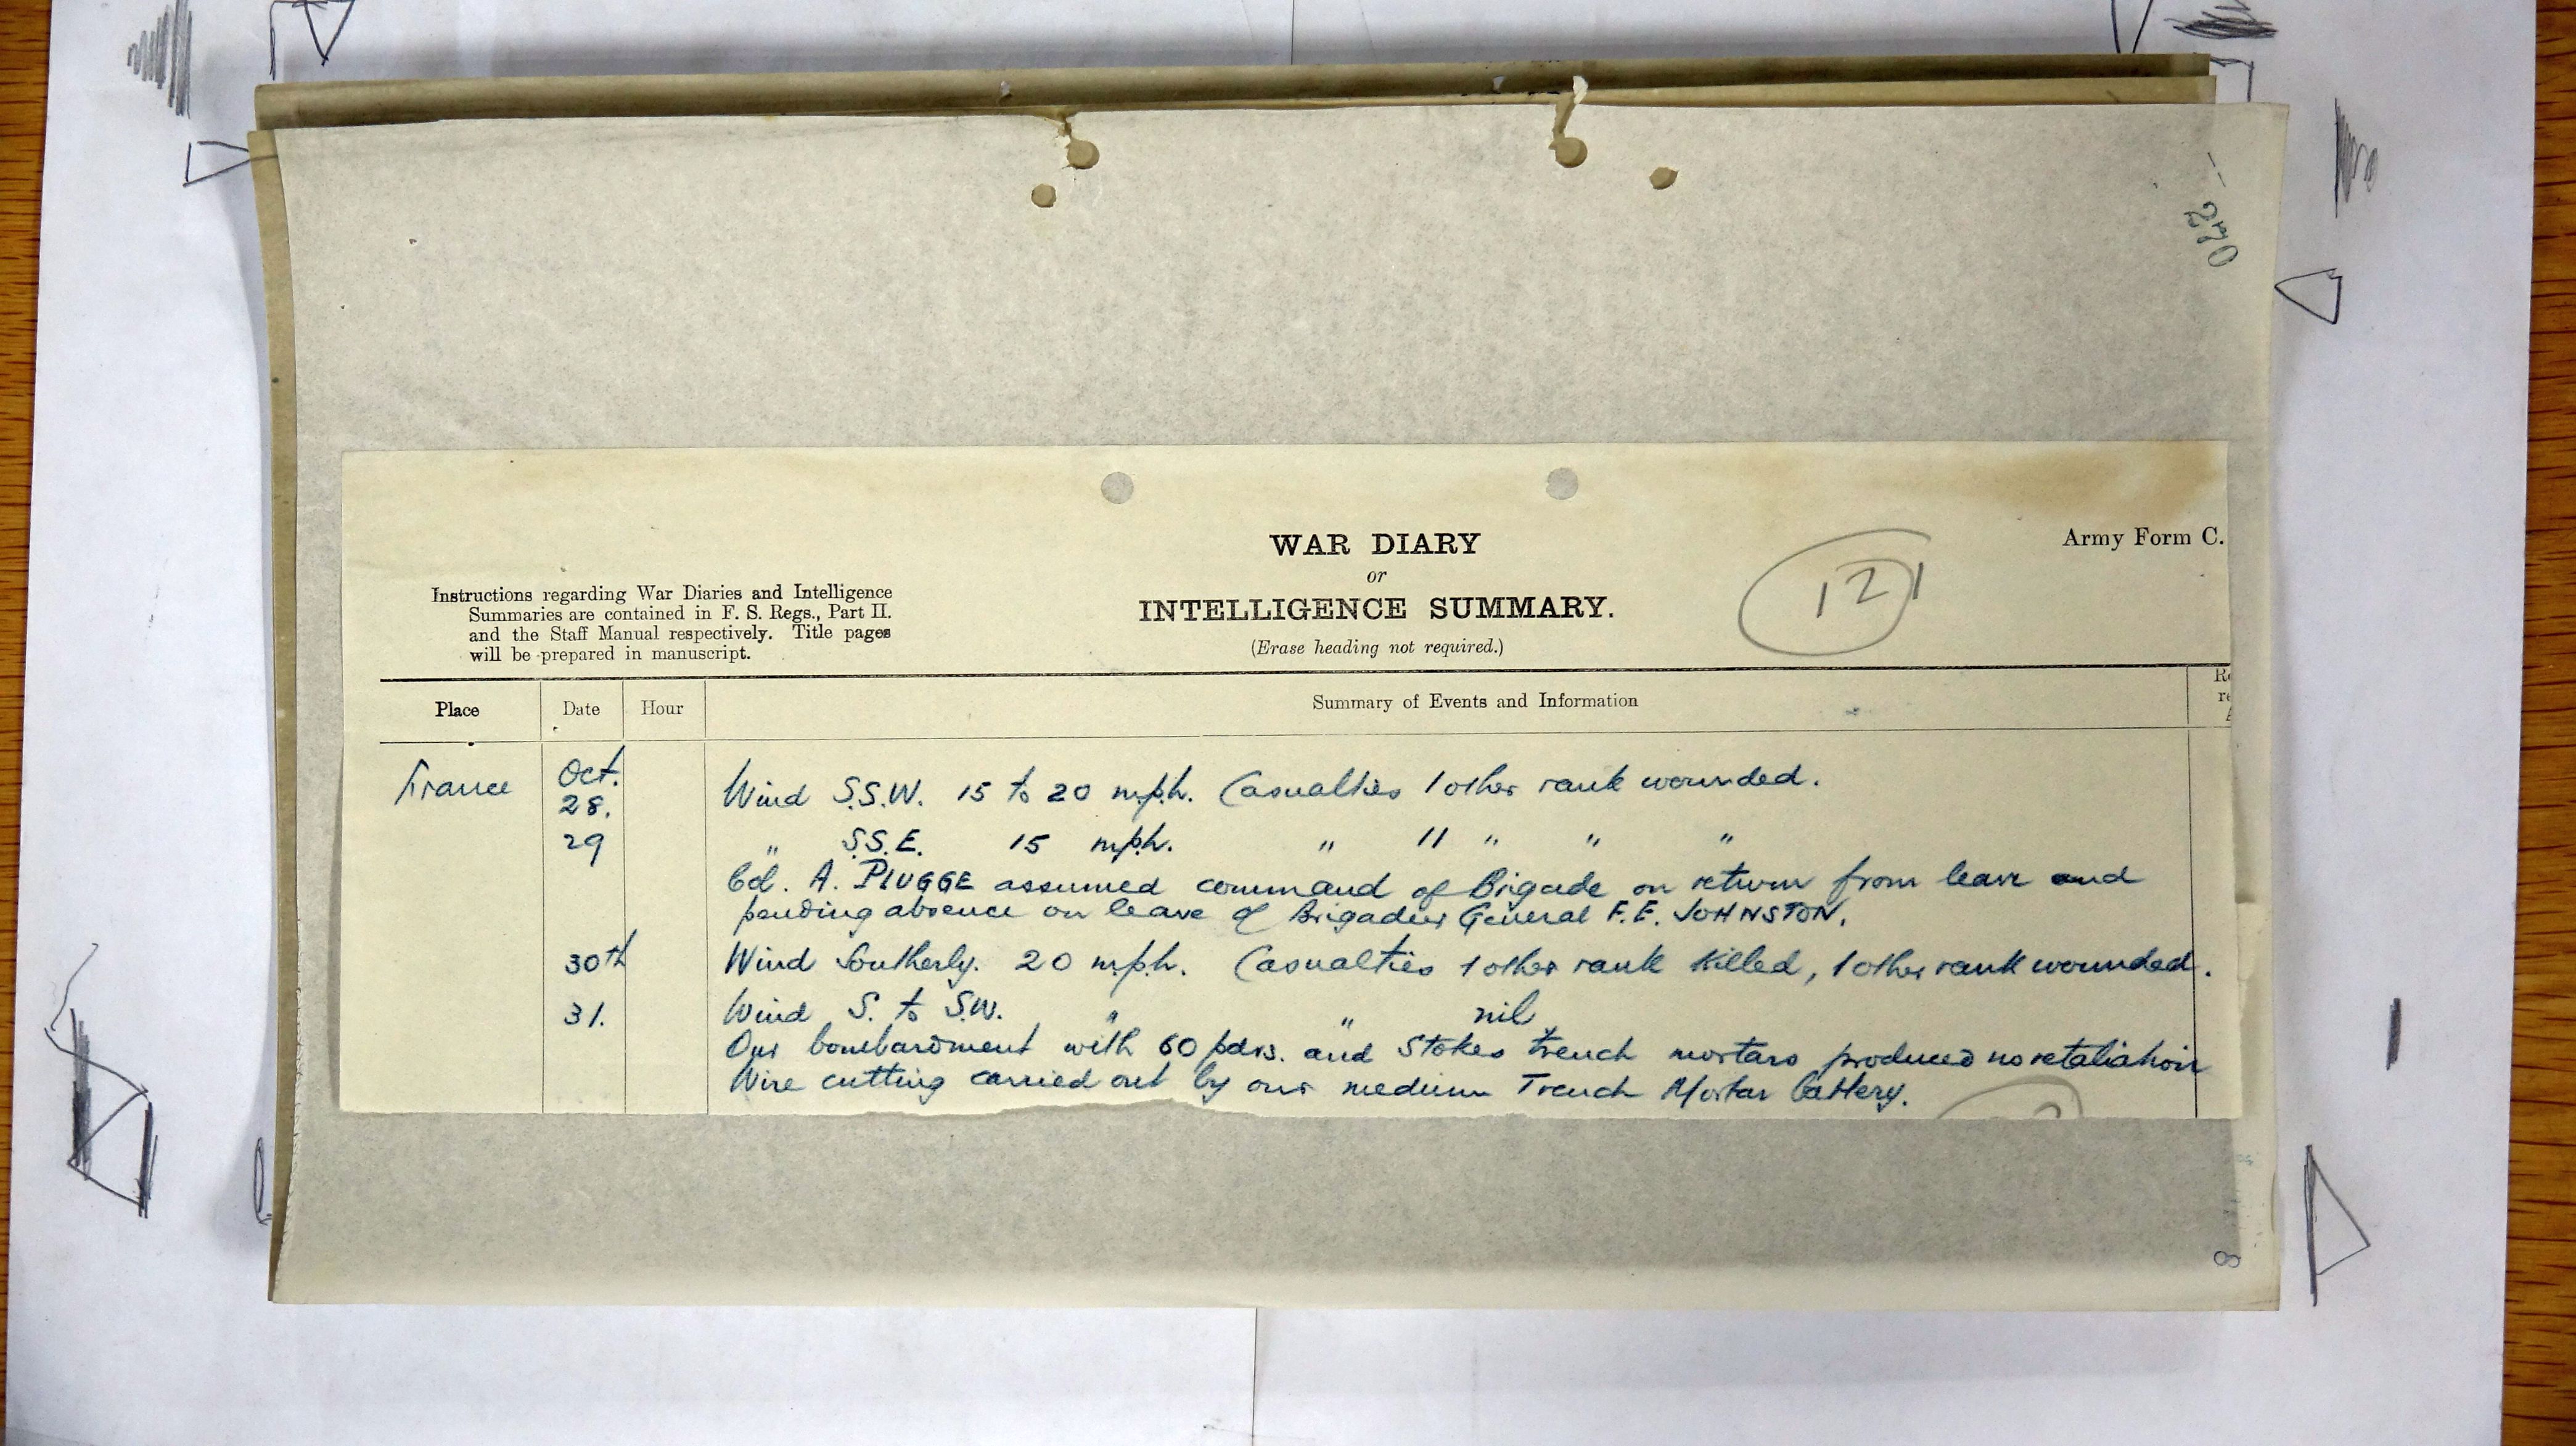 270
WAR DIARY
or
INTELLIGENCE SUMMARY.
(Erase heading not required.)
121
Army Form C.
Instructions regarding War Diaries and Intelligence
Summaries are contained in F. S. Regs., Part II.
and the Staff Manual respectively. Title pages
will be prepared in manuscript.
Place Date Hour Summary of Events and Information
France Oct.
28. Wind S.S.W. 15 to 20 m.p.h. Casualties 1 other rank wounded.
29 " S.S.E. 15 mph. " 11 " " "
Col. A. PLUGGE assumed command of Brigade on return from leave and
pending absence on leave of Brigadier General F.E. JOHNSTON.
30th Wind Southerly. 20 m.p.h. Casualties 1 other rank killed, 1 other rank wounded.
31. Wind S. to S.W. " " nil
Our bombardment with 60 pdrs. and Stokes trench mortars produced no retaliation
Wire cutting carried out by our medium Trench Mortar battery.
8